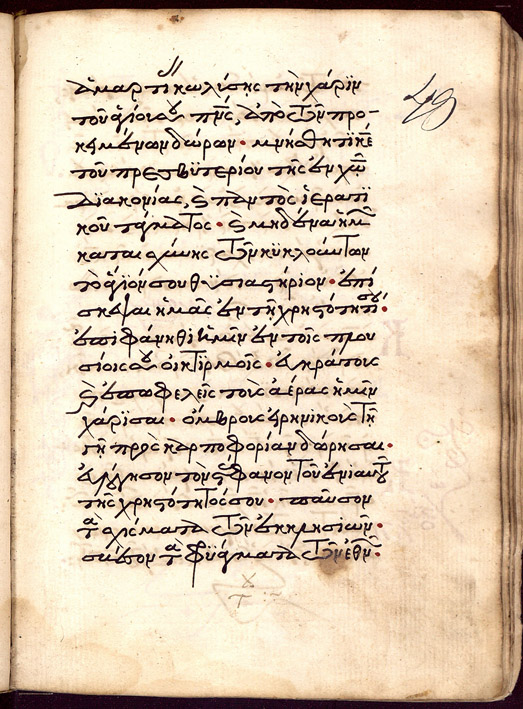 ἁμαρτί κωλύσης τὴν χάριν
τοῦ ἁγίου σου πν̅ς, ἀπὸ τῶν προ-
κειμένων δώρων· μνήσθητι κ̅ε
τοῦ πρεσβυτερίου τῆς ἐν χ̅ω
διακονίας, ϗ παντὸς ἱερατι
κοῦ τάγματος· ϗ μηδένα ἡμῶν
καταισχύνης τῶν κυκλούντων
τὸ ἅγιόν σου θυσιαστήριον· ἐπί
σκεψαι ἡμᾶς ἐν τῇ χρηστότητί σου·
ἐπιφάνηθι ἡμῖν ἐν τοῖς πλου
σίοις σου οἰκτιρμοῖς· εὐκράτους
ϗ ἐπωφελεῖς τοὺς ἀέρας ἡμῖν
χάρισαι· ὄμβρους εἰρηνικοὺς τῇ
γῇ πρὸς καρποφορίαν δώρησαι·
εὐλόγησον τὸν στέφανον τοῦ ἐνιαυτοῦ
τῆς χρηστότητός σου· παῦσον
τὰ σχίσματα τῶν ἐκκλησιῶν·
σβέσον τὰ φρυάγματα τῶν ἐθνῶν·